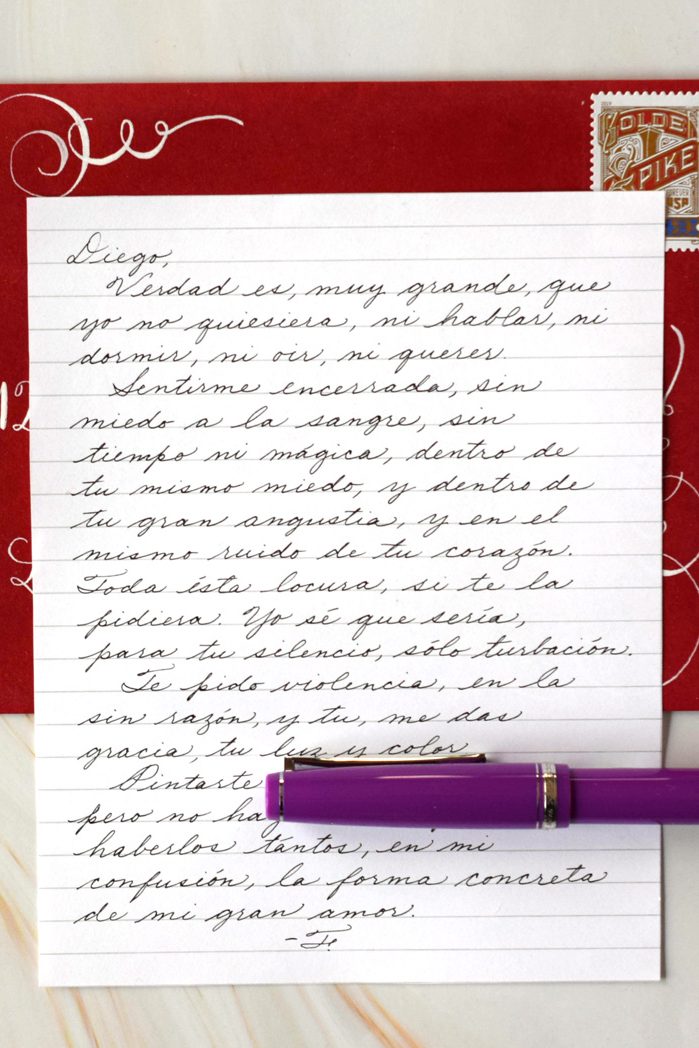 OLDE
SPIKE
12
Diego,
Verdad es, muy grande, que
yo no quiesiera, ni hablar, ni
dormir, ni oir, ni querer.
Sentirme encerrada, sin
miedo a la sangre, sin
tiempo ni mágica, dentro de
tu mismo miedo, y dentro de
tu gran angustia, y en el
mismo ruido de tu corazón.
Toda ésta locura, si te la
pidiera. Yo sé que sería,
para tu silencio, sólo turbación.
Te pido violencia, en la
sin razón, y tu, me das
gracia, tu luz y color
Pintarte
pero no
haberlos tántos, en mi
confusión, la forma concreta
de mi gran amor.
-F.